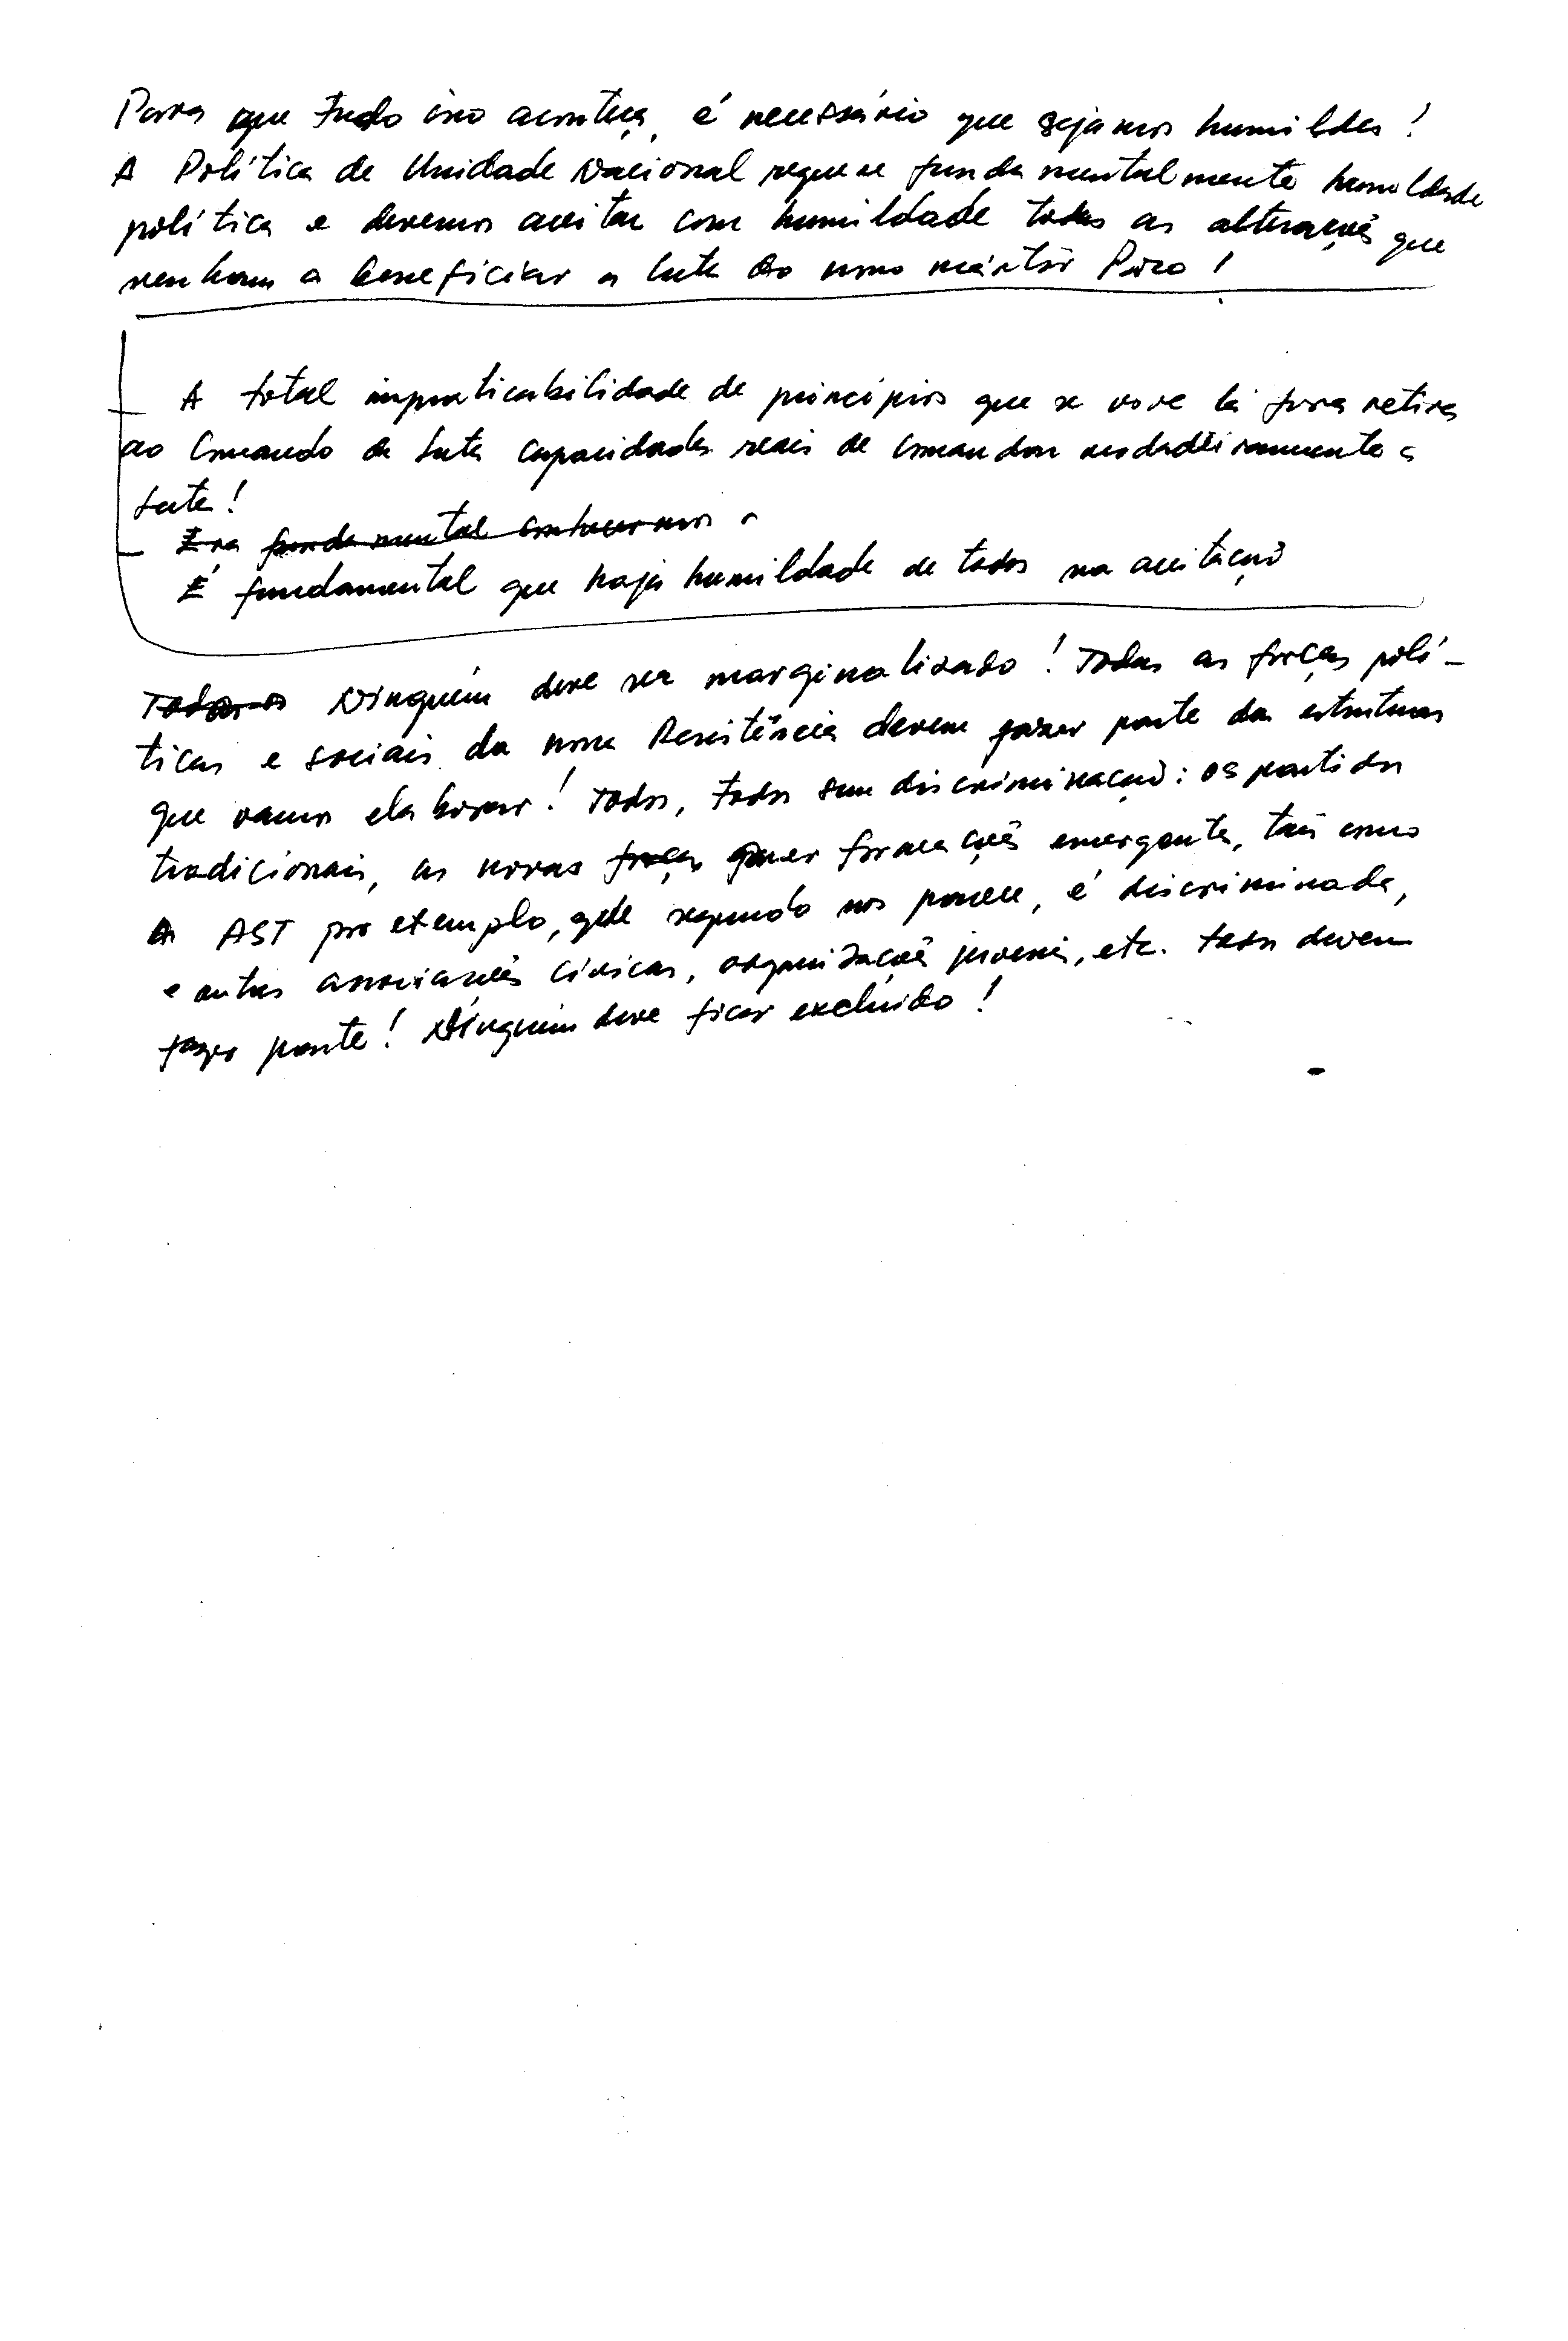 Para que tudo isso aconteça, é necessário que sejamos humildes!
A Política de Unidade Nacional requere fundamentalmente humildade
política e devemos aceitar com humildade todas as alterações que
venham a beneficiar a luta do nosso mártir Povo!
A total impraticabilidade de princípios que se vive lá fora retira
ao Comando da Luta capacidades reais de comandar verdadeiramente a
Luta!
Era fundamental conhecermos a
É fundamental que haja humildade de todos na aceitação
Todos os Ninguém deve ser marginalizado! Todas as forças polí-
ticas e sociais da nossa Resistência devem fazer parte das estruturas
que vamos elaborar! Todos, todos sem discriminação: os partidos
tradicionais, as novas forças quer formações emergentes, tais como
A AST por exemplo, que segundo nos parece, é discriminada,
e outras associações cívicas, organizações juvenis, etc. todos devem
fazer parte! Ninguém deve ficar excluído!